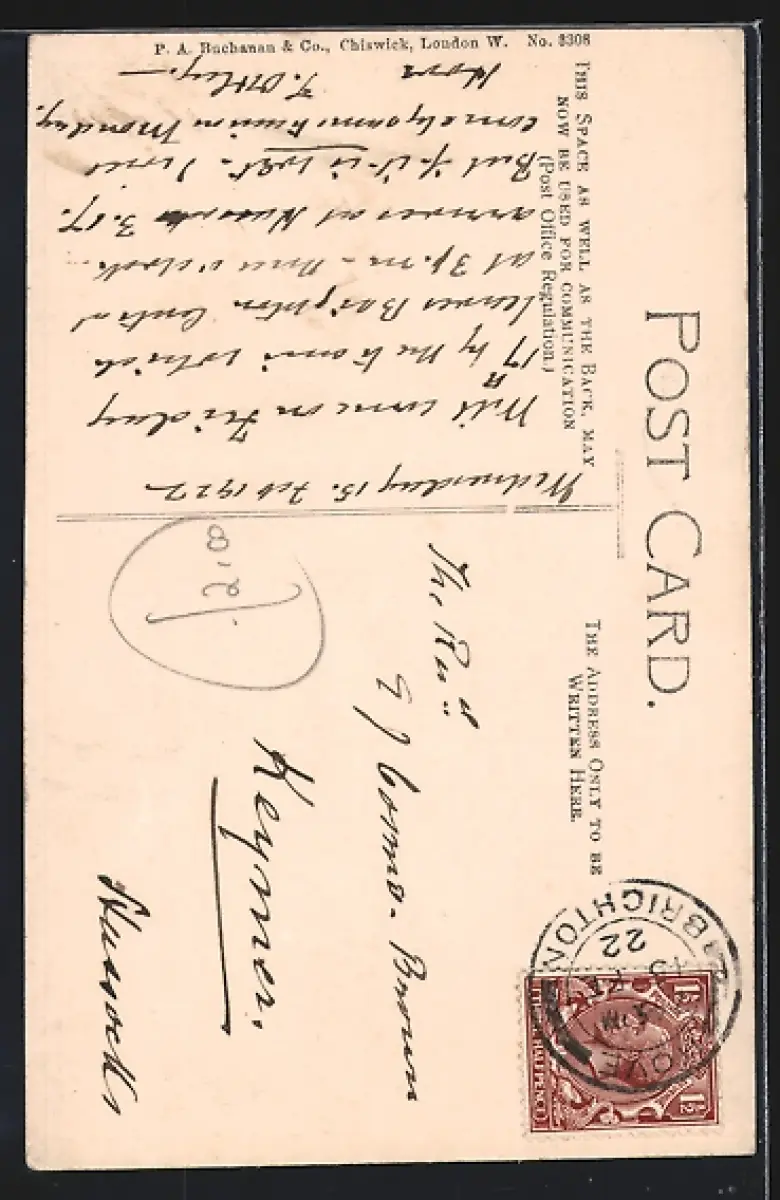 P. A. Buchanan & Co., Chiswick, London W. No. 3308
POST CARD.
THIS SPACE AS WELL AS THE BACK, MAY
NOW BE USED FOR COMMUNICATION
(Post Office Regulation.)
THE ADDRESS ONLY TO BE
WRITTEN HERE.
Wednesday 15. Feb 1922
Will come on Friday
17th by the train which
leaves Brighton Central
at 3 p.m - three o'clock -
arrives at 3.17.
But if it is wet - I will
come by omnibus on Monday.
F. Ottley. -
The Revd
G J Cosmo-Brown
Keymer.
Hassocks
BRIGHTON
HOVE
22
1½
1½
THREE HALFPENCE